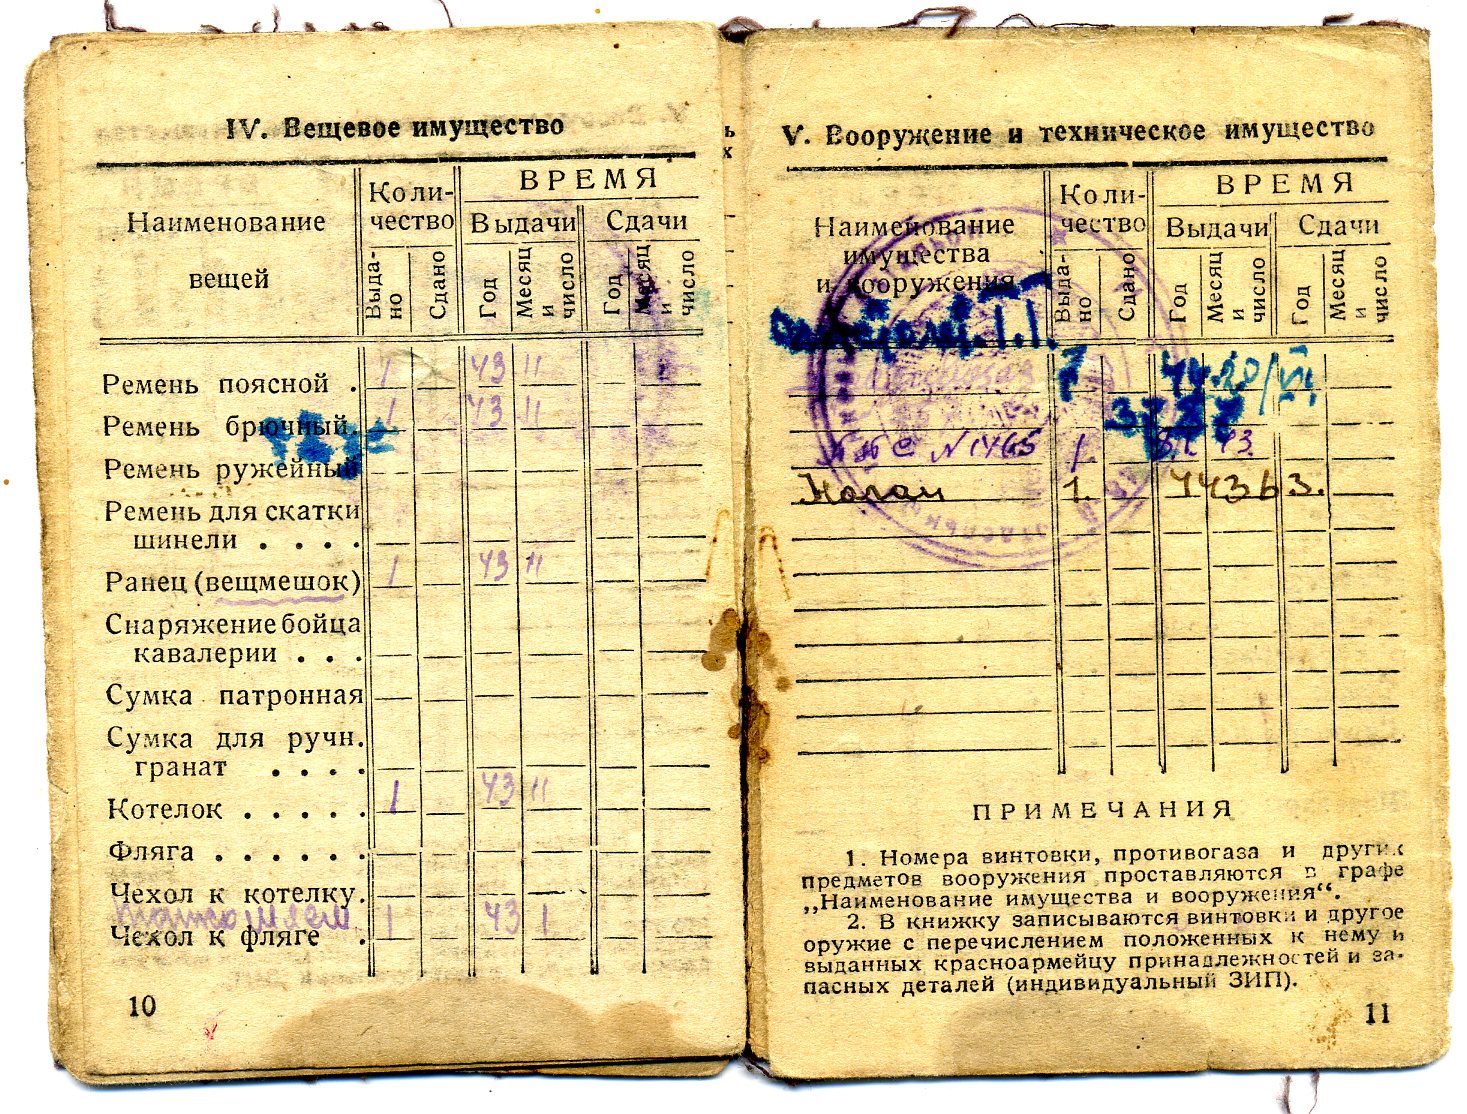 IV. Вещевое имущество
Наименование вещей
Коли-
чество
ВРЕМЯ
Выдачи
Сдачи
Выда-
но
Сдано
Год
Месяц
и
число
Год
Месяц
и
число
Ремень поясной . 1 43 11
Ремень брючный. 1 43 11
Ремень ружейный
Ремень для скатки
шинели . . . .
Ранец (вещмешок) 1 43 11
Снаряжение бойца
кавалерии . . .
Сумка патронная
Сумка для ручн.
гранат . . . .
Котелок . . . . . 1 43 11
Фляга . . . . . .
Чехол к котелку.
1 43 1
Чехол к фляге .
10
V. Вооружение и техническое имущество
Наименование
имущества
и вооружения
Коли-
чество
ВРЕМЯ
Выдачи
Сдачи
Выда-
но
Сдано
Год
Месяц
и
число
Год
Месяц
и
число
1 44 20/VI
N 1465 1. 43.
Наган 1.
ПРИМЕЧАНИЯ
1. Номера винтовки, противогаза и других
предметов вооружения проставляются в графе
„Наименование имущества и вооружения“.
2. В книжку записываются винтовки и другое
оружие с перечислением положенных к нему и
выданных красноармейцу принадлежностей и за-
пасных деталей (индивидуальный ЗИП).
11